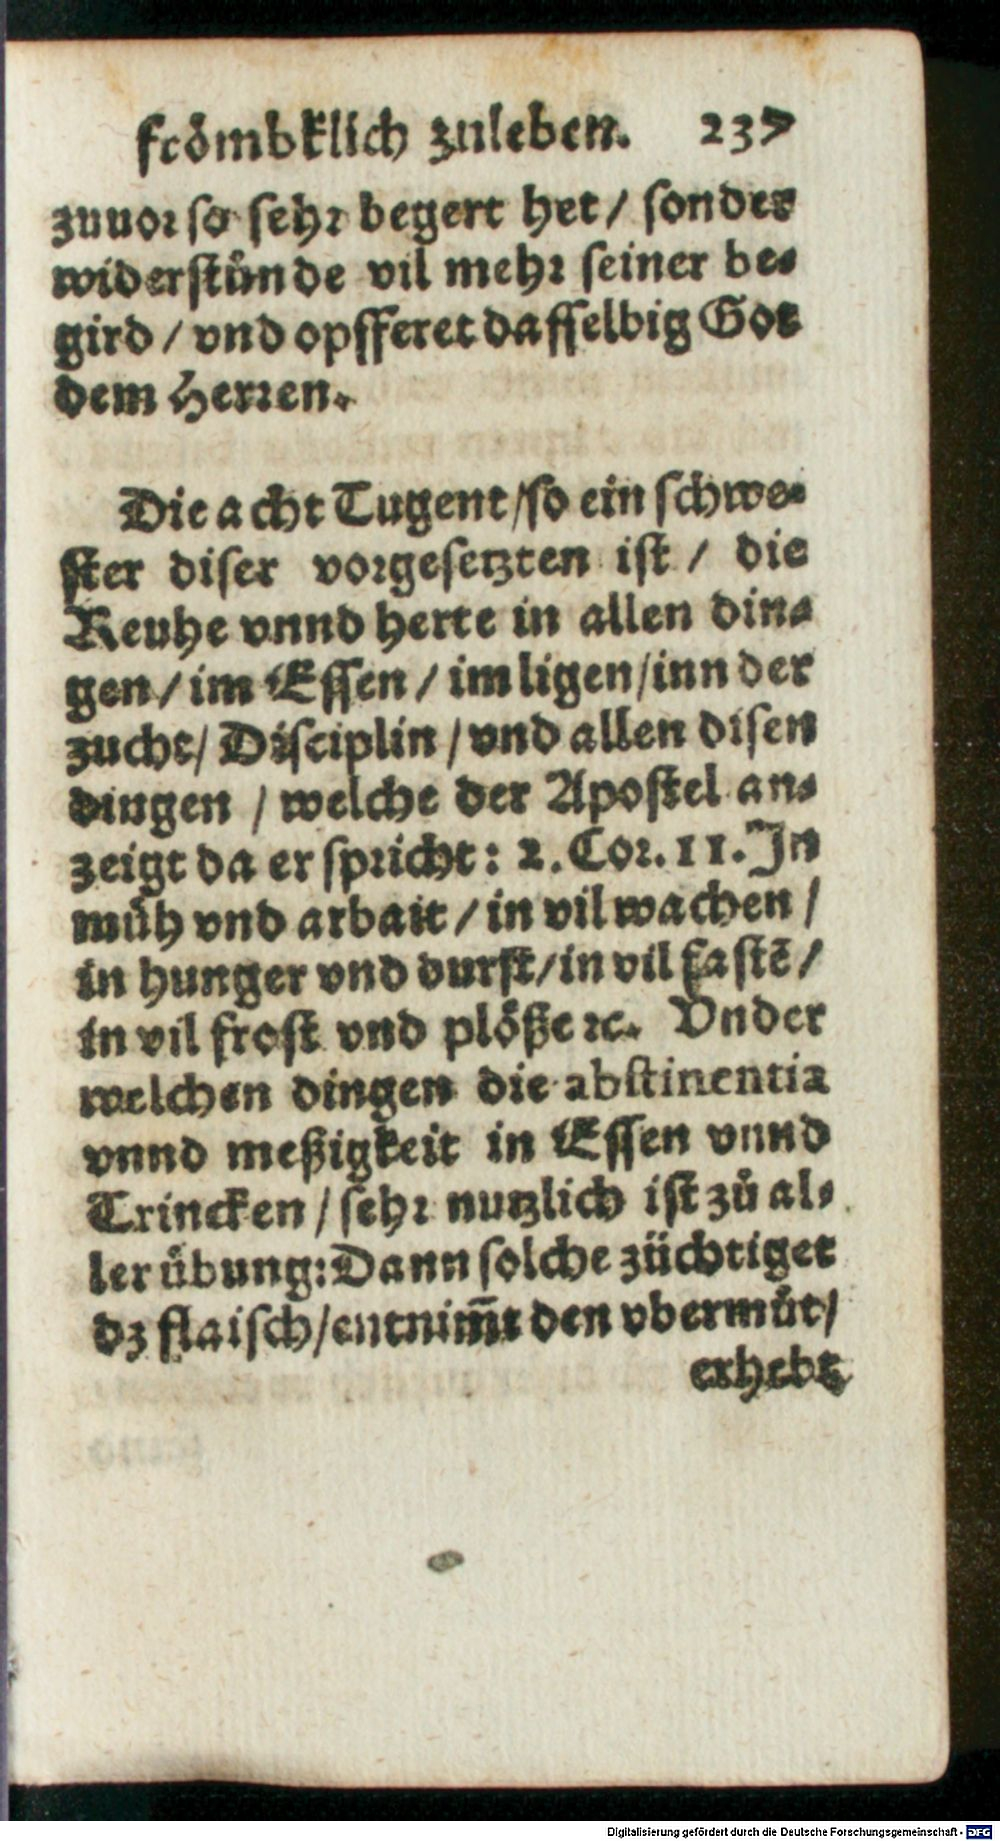 frömbklich zuleben. 237
zuuor so sehr begert het / sonder
widerstünde vil mehr seiner be-
gird / vnd opfferet dasselbig Got
dem Herren.
Die acht Tugent / so ein schwe-
ster diser vorgesetzten ist / die
Reuhe vnnd herte in allen din-
gen / im Essen / im ligen / inn der
zucht / Disciplin / vnd allen disen
dingen / welche der Apostel an-
zeigt da er spricht: 2. Cor. 11. In
müh vnd arbait / in vil wachen /
in hunger vnd durst / in vil fastē /
in vil frost vnd plöße ꝛc. Vnder
welchen dingen die abstinentia
vnnd meßigkeit in Essen vnnd
Trincken / sehr nutzlich ist zů al-
ler übung: Dann solche züchtiget
dz flaisch / entnim̄t den vbermůt /
erhebt
Digitalisierung gefördert durch die Deutsche Forschungsgemeinschaft - DFG